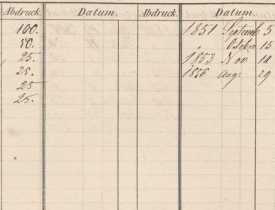 Abdruck. Datum. Abdruck. Datum.
100. 1851 Septemb 5
50. October 15
25. 1853 Nov 10
25. 1858 Aug 29
25
25.